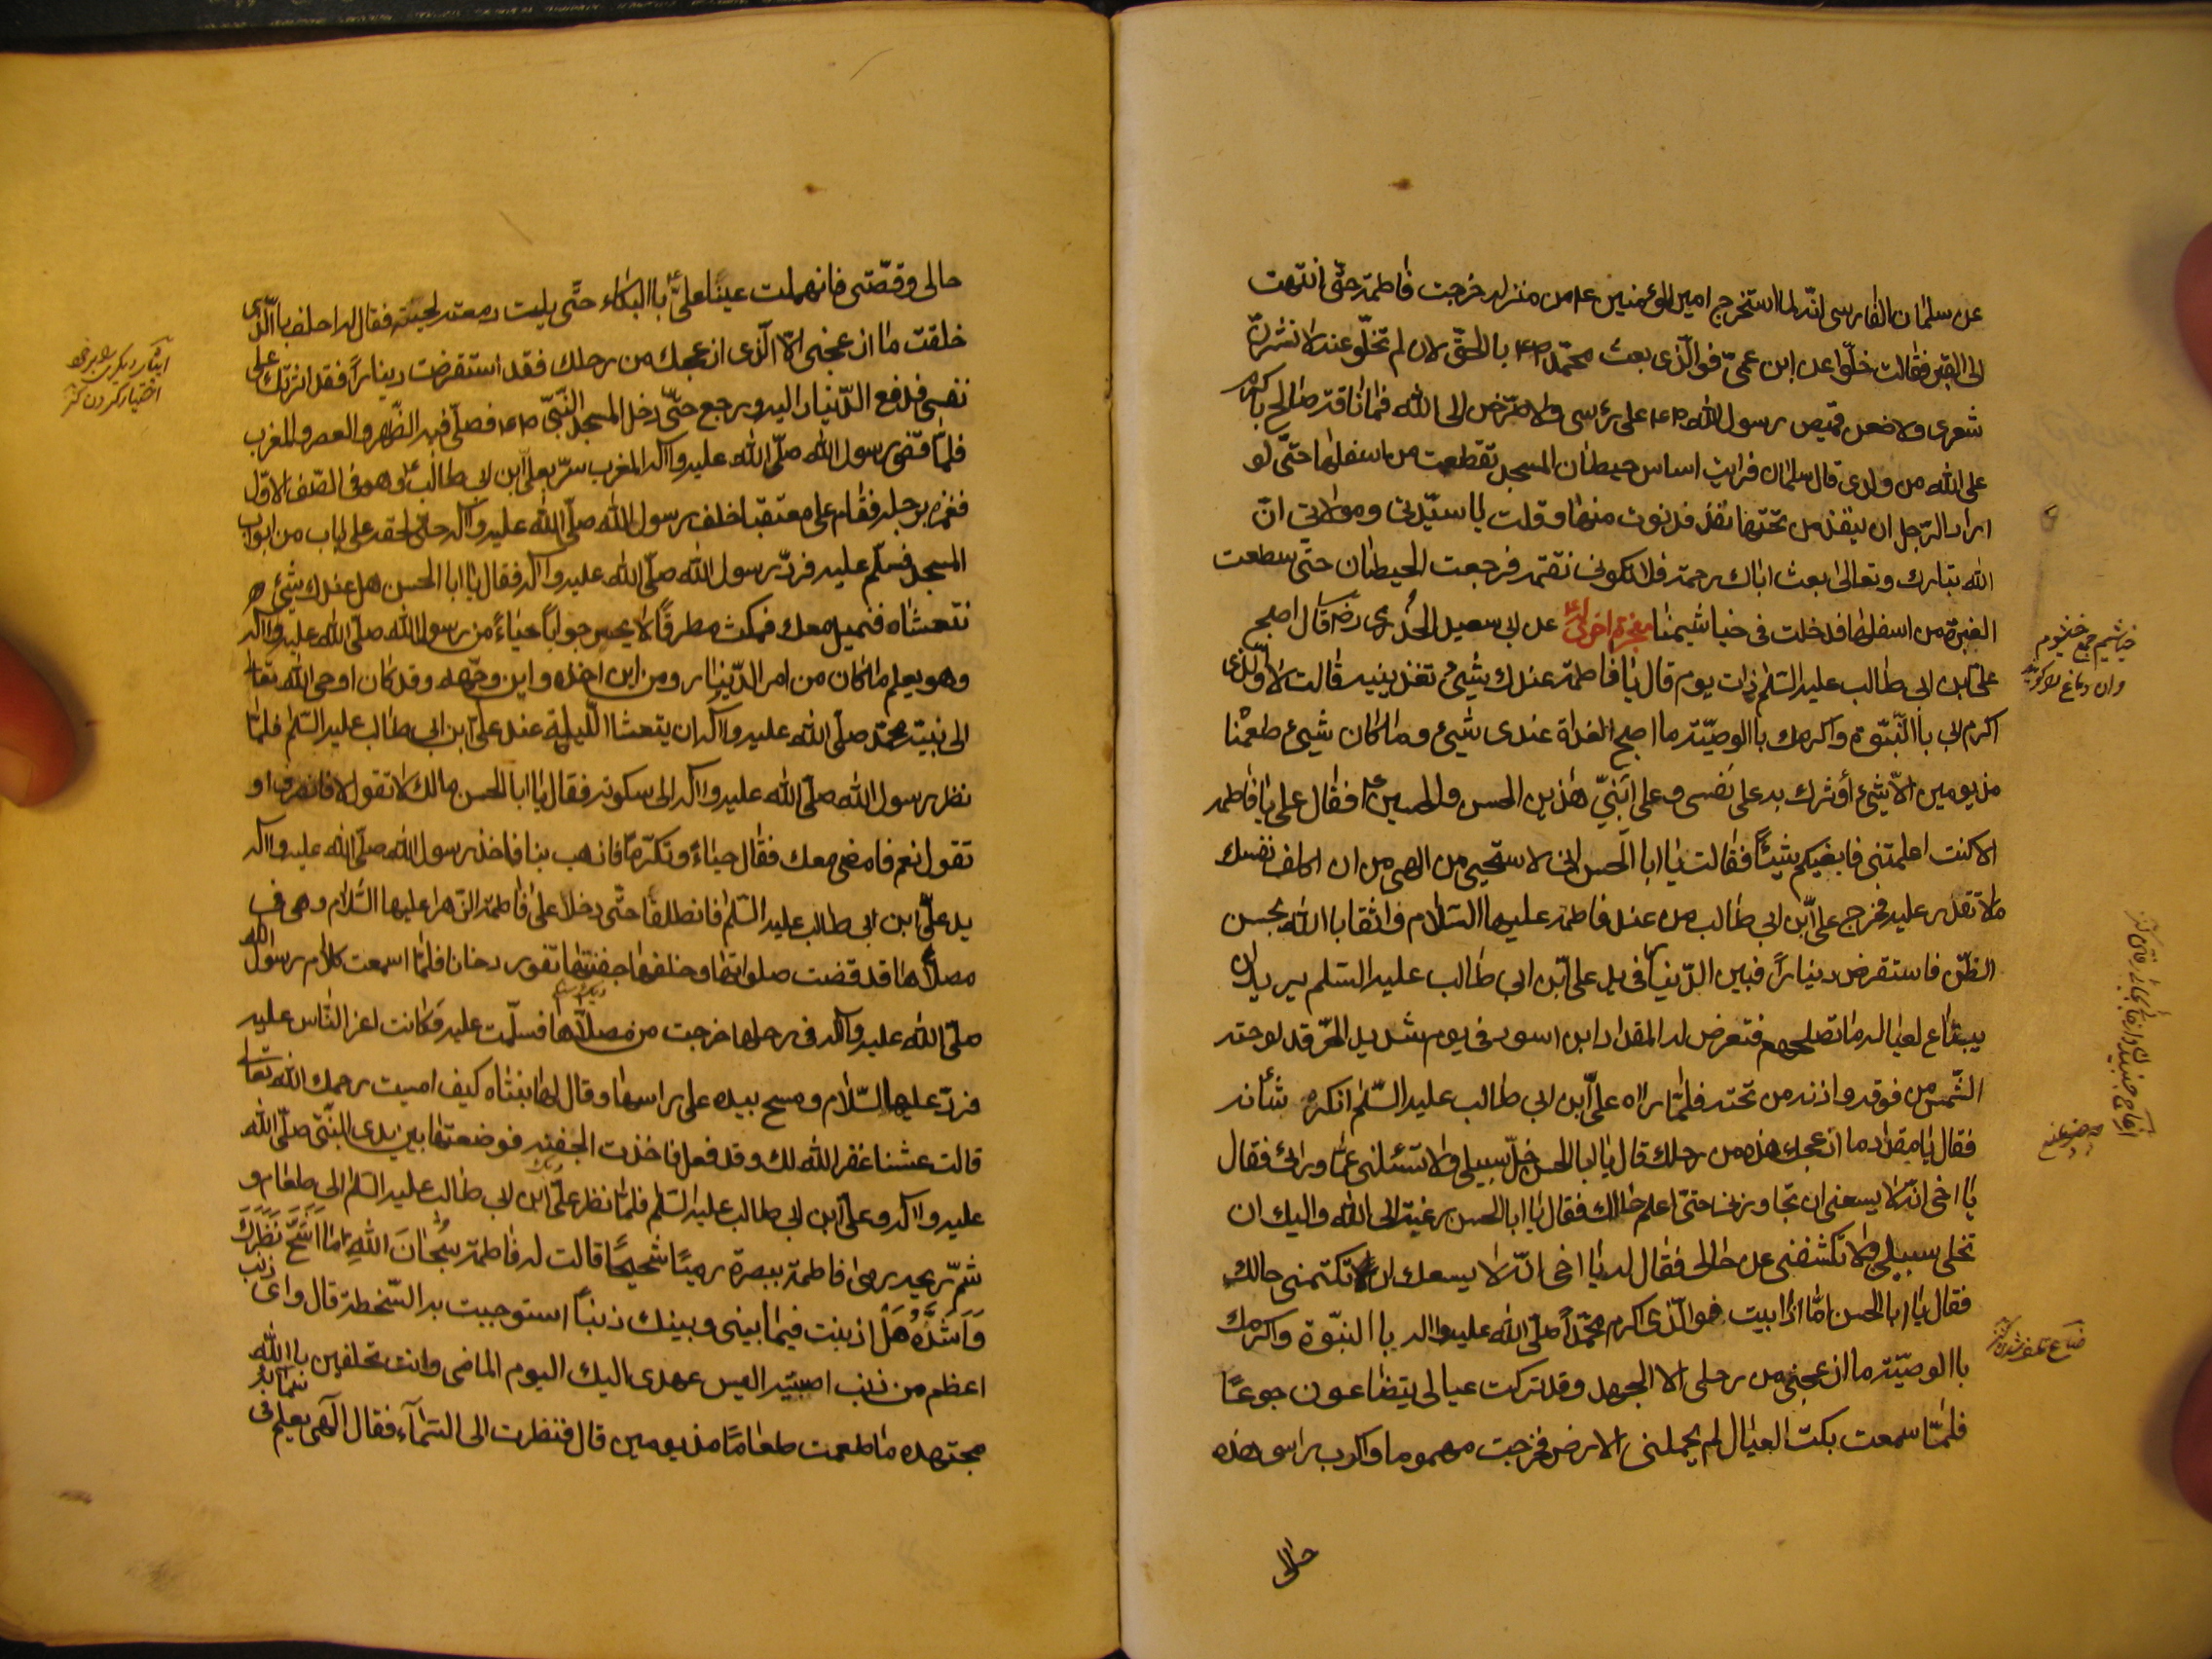 عن سلمان الفارسی انّه لما استخرج امیر المؤمنین ع من منزله خرجت فاطمة حتّی انتهت
الی القبر فقالت خلّوا عن ابن عمّی فوالّذی بعث محمّد بالحقّ لان لم تخلّو عنه لانشرنّ
شعری ولاضعن قمیص رسول الله علی رئسی ولاصرخن الی الله فما ناقة صالح باکرم
علی الله من ولدی قال سلمان فرایت اساس حیطان المسجد تقطعت من اسفلها حتّی لو
اراد الرّجل ان ینفذ من تحتها نفذ فدنوت منها وقلت یا سیّدتی ومولاتی انّ
الله تبارک وتعالی بعث اباک رحمة فلا تکونی نقمة فرجعت الحیطان حتّی سطعت
الغبرة من اسفلها فدخلت فی خیاشیمنا معجزة اخری عن ابی سعید الخُدری رض قال اصبح
علیّ ابن ابی طالب علیه السّلم ذات یوم قال یا فاطمة عندک شیئ تغذینیه قالت لا والّذی
اکرم ابی باالنّبوّة واکرمک باالوصیّة ما اصبح الغداة عندی شیئ وما کان شیئ طعمنا
مذ یومین الّا شیئ أوثرک به علی نفسی وعلی ابنیّ هذین الحسن والحسین فقال علی یا فاطمة
الا کنت اعلمتنی فابغیکم شیئاً فقالت یا ابا الحسن انی لاستحیی من الهی من ان اکلف نفسک
مالا تقدر علیه فخرج علیّ ابن ابی طالب من عند فاطمة علیها السّلام واثقا باالله بحسن
الظّن فاستقرض دیناراً فبین الدّینار فی ید علیّ ابن ابی طالب علیه السّلم یرید ان
یبتاع لعیاله ما تصلحهم فتعرض له المقداد ابن اسود فی یوم شدید الحرّ قد لوحته
الشّمس من فوقه واذته من تحته فلمّا راه علیّ ابن ابی طالب علیه السّلم انکره شأنه
فقال یا مقداد ما ازعجک هذه من رحلک قال یا ابا الحسن خلّ سبیلی ولا تسئلنی عمّا ورائی فقال
یا اخی انّه لا یسعنی ان تجاوزنی حتّی اعلم حالک فقال یا ابا الحسن رغبة الی الله والیک ان
تخلی سبیلی ولا تکشفنی عن حالی فقال له یا اخی انّه لا یسعک ان تکتمنی حالک
فقال یا ابا الحسن امّا اذا ابیت فوالّذی اکرم محمّداً صلّی الله علیه واله باالنبّوة واکرمک
باالوصیّة ما ازعجنی من رحلی الا الجهد وقد ترکت عیالی یتضاعون جوعًا
فلمّا سمعت بکت العیال لم یحملنی الارض فخرجت مهموما راکب راسی هذه
حالی
خیاشیم جمع خیشوم
حالی وقصّتی فانهملت عینا علیّ باالبکاء حتّی بلّت دمعته لحیته فقال له احلف باالّذی
خلقت ما ازعجنی الّا الّذی ازعجک من رحلک فقد استقرضت دیناراً فقد اثرتک علی
نفسی فدفع الدّنیار الیه ورجع حتّی دخل المسجد النّبیّ فصلّی فیه الظّهر والعصر والمغرب
فلمّا قضی رسول الله صلّی الله علیه واله المغرب مرّ بعلیّ ابن ابی طالب وهو فی الصّف الاوّل
فغمزه برجله فقام علی معتقبا خلف رسول الله صلّی الله علیه واله حتّی لحقه علی باب من ابواب
المسجد فسلّم علیه فردّ رسول الله صلّی الله علیه واله فقال یا ابا الحسن هل عندک شیئ
نتعشاه فنمیل معک فمکث مطرقًا لا یحیر جواباً حیاءً من رسول الله صلّی الله علیه واله
وهو یعلم ما کان من امر الدّینار ومن این اخذه واین وجّهه وقد کان اوحی الله تعا
الی نبیّه محمّد صلّی الله علیه واله ان یتعشا اللّیلة عند علیّ ابن ابی طالب علیه السّلم فلمّا
نظر رسول الله صلّی الله علیه واله الی سکوته فقال یا ابا الحسن مالک لا تقول لا فانصرف او
تقول نعم فامضی معک فقال حیاءً وتکرّمًا فاذهب بنا فاخذ رسول الله صلّی الله علیه واله
ید علیّ ابن ابی طالب علیه السّلم فانطلقا حتّی دخلا علی فاطمة الزّهرا علیها السّلام وهی فی
مصلّاها قد قضت صلواتها وخلفها جفنتها تفور دخان فلمّا سمعت کلام رسول الله
صلّی الله علیه واله فی رحلها خرجت من مصلّاها فسلّمت علیه فکانت اعز النّاس علیه
فردّ علیها السّلام ومسح بیده علی راسها وقال لها بنتاه کیف امسیت رحمک الله تعا
قالت عشنا غفر الله لک وقد فعل فاخذت الجفنه فوضعتها بین یدی النّبیّ صلّی الله
علیه واله وعلیّ ابن ابی طالب علیه السّلم فلمّا نظر علیّ ابن ابی طالب علیه السّلم الی طعام و
شمّ ریحه رمی فاطمة ببصره رمیًا شحیحًا قالت له فاطمة سُبحانَ اللهِ ما اَشَحَّ نَظَرَکَ
وَاَشَدَّهُ هَلْ اذبنت فیما بینی وبینک ذنباً استوجبت به السّخطة قال وای ذنب
اعظم من ذنب اصبتیه الیس عهدی الیک الیوم الماضی وانت تحلفین باالله
مجتهده ما طعمت طعامًا مذ یومین قال فنظرت الی السّمآء فقال الٓهی یعلم فی
سمآئه